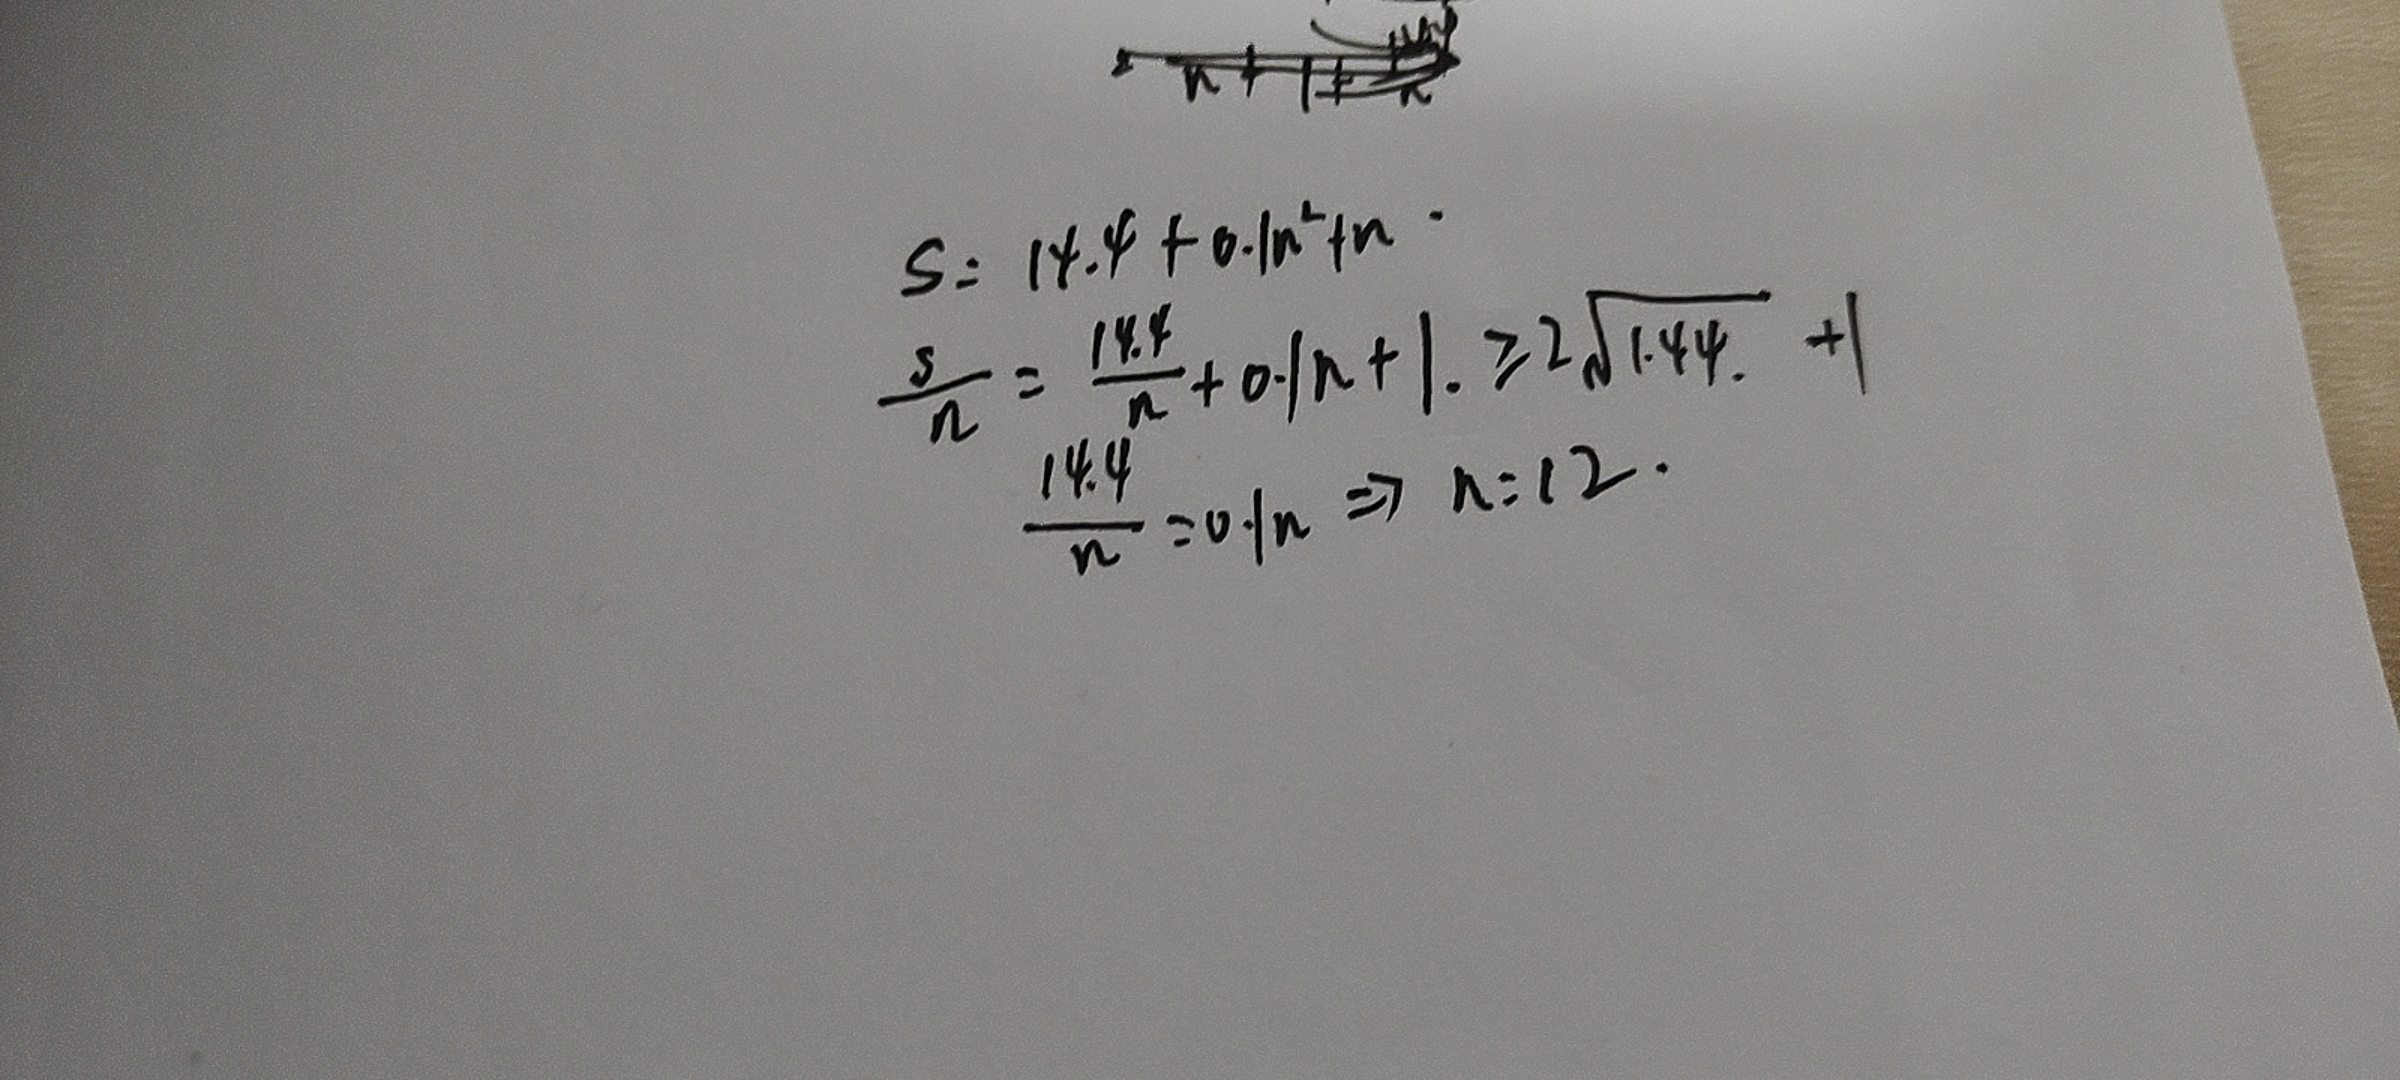 n + 1 + n
S = 14.4 + 0.1n² + n .
s/n = 14.4/n + 0.1n + 1. ≥ 2√1.44. + 1
14.4/n = 0.1n ⇒ n = 12 .